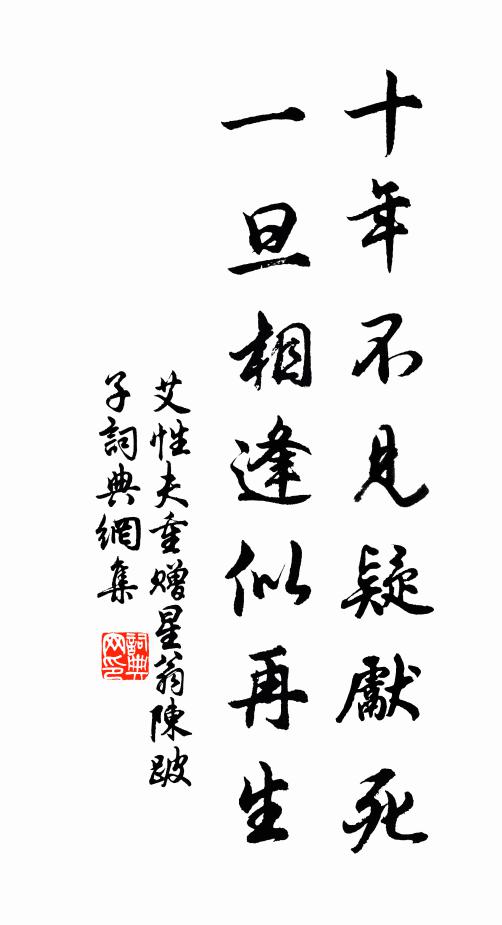 十年不見疑獻死
一旦相逢似再生
艾性夫重贈星翁陳跛
子詞典網集
詞典网印